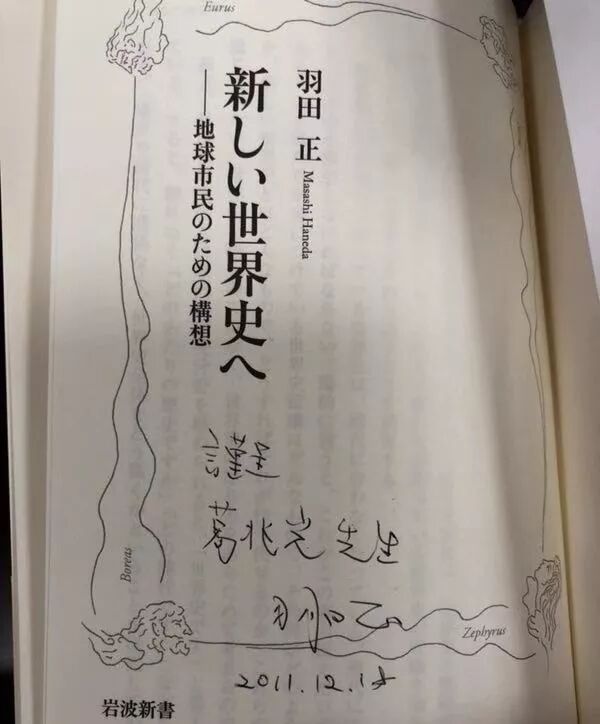 Eurus
羽田 正
Masashi Haneda
新しい世界史へ
──地球市民のための構想
謹呈
葛兆光先生
羽田正
2011.12.18
Boreas
Zephyrus
岩波新書